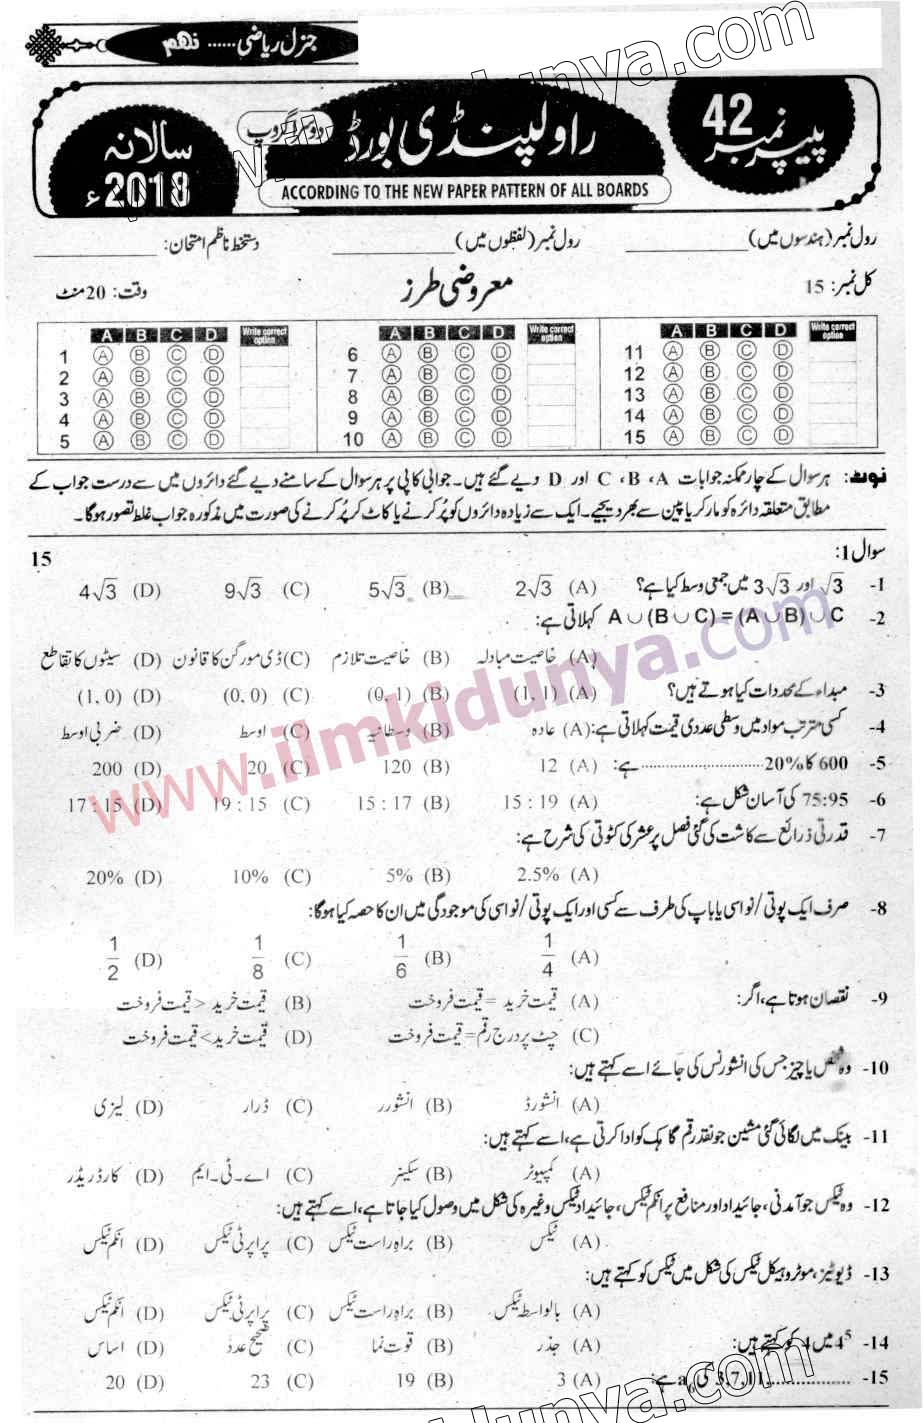 جنرل ریاضی ...... نهم
پیپر نمبر 42
راولپنڈی بورڈ
دوسرا گروپ
سالانہ 2018ء
ACCORDING TO THE NEW PAPER PATTERN OF ALL BOARDS
رول نمبر (ہندسوں میں) ____________ رول نمبر (لفظوں میں) ____________ دستخط ناظم امتحان: ____________
کل نمبر: 15 معروضی طرز وقت: 20 منٹ
A B C D Write correct option A B C D Write correct option A B C D Write correct option
1 A B C D 6 A B C D 11 A B C D
2 A B C D 7 A B C D 12 A B C D
3 A B C D 8 A B C D 13 A B C D
4 A B C D 9 A B C D 14 A B C D
5 A B C D 10 A B C D 15 A B C D
نوٹ: ہر سوال کے چار ممکنہ جوابات A، B، C اور D دیے گئے ہیں۔ جوابی کاپی پر ہر سوال کے سامنے دیے گئے دائروں میں سے درست جواب کے
مطابق متعلقہ دائرہ کو مارکر یا پین سے بھر دیجیے۔ ایک سے زیادہ دائروں کو پُر کرنے یا کاٹ کر پُر کرنے کی صورت میں مذکورہ جواب غلط تصور ہوگا۔
سوال 1: 15
1- √3 اور 3√3 میں جمعی وسط کیا ہے؟ (A) 2√3 (B) 5√3 (C) 9√3 (D) 4√3
2- A∪(B∪C)=(A∪B)∪C کہلاتی ہے:
(A) خاصیت مبادلہ (B) خاصیت تلازم (C) ڈی مورگن کا قانون (D) سیٹوں کا تقاطع
3- مبداء کے محددات کیا ہوتے ہیں؟ (A) (1, 1) (B) (0, 1) (C) (0, 0) (D) (1, 0)
4- کسی مرتب مواد میں وسطی عددی قیمت کہلاتی ہے: (A) عادہ (B) وسطانیہ (C) اوسط (D) ضربی اوسط
5- 600 کا 20% .......................... ہے: (A) 12 (B) 120 (C) 20 (D) 200
6- 75:95 کی آسان شکل ہے: (A) 15 : 19 (B) 15 : 17 (C) 19 : 15 (D) 17 : 15
7- قدرتی ذرائع سے کاشت کی گئی فصل پر عشر کی کٹوتی کی شرح ہے:
(A) 2.5% (B) 5% (C) 10% (D) 20%
8- صرف ایک پوتی/نواسی یا باپ کی طرف سے کسی اور ایک پوتی/نواسی کی موجودگی میں ان کا حصہ کیا ہوگا:
(A) 1/4 (B) 1/6 (C) 1/8 (D) 1/2
9- نقصان ہوتا ہے، اگر: (A) قیمت خرید = قیمت فروخت (B) قیمت خرید > قیمت فروخت
(C) چٹ پر درج رقم = قیمت فروخت (D) قیمت خرید < قیمت فروخت
10- وہ شخص یا چیز جس کی انشورنس کی جائے اسے کہتے ہیں:
(A) انشورڈ (B) انشورر (C) ڈرار (D) لیزی
11- بینک میں لگائی گئی مشین جو نقد رقم گاہک کو ادا کرتی ہے، اسے کہتے ہیں:
(A) کمپیوٹر (B) سکینر (C) اے۔ٹی۔ایم (D) کارڈ ریڈر
12- وہ ٹیکس جو آمدنی، جائیداد اور منافع پر انکم ٹیکس، جائیداد ٹیکس وغیرہ کی شکل میں وصول کیا جاتا ہے، اسے کہتے ہیں:
(A) ٹیکس (B) براہ راست ٹیکس (C) پراپرٹی ٹیکس (D) انکم ٹیکس
13- ڈیوٹیز، موٹر وہیکل ٹیکس کی شکل میں ٹیکس کو کہتے ہیں:
(A) بالواسطہ ٹیکس (B) براہ راست ٹیکس (C) پراپرٹی ٹیکس (D) انکم ٹیکس
14- 4⁵ میں 4 کو کہتے ہیں: (A) جذر (B) قوت نما (C) صحیح عدد (D) اساس
15- 3,7,11,.................. کی a₆ ہے: (A) 3 (B) 19 (C) 23 (D) 20
www.ilmkidunya.com